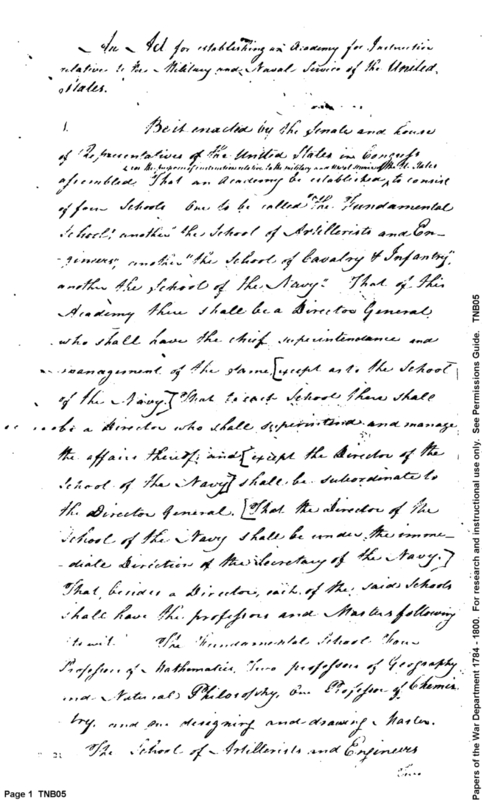 An Act for establishing an Academy for Instruction
relative to the Military and Naval Service of the United
States.
1. Be it enacted by the Senate and House
of Representatives of the United States in Congress
for the purpose of instruction relative to the military and naval service of the U. States
assembled, That an Academy be established, to consist
of four Schools One to be called "The Fundamental
School," another "the School of Artillerists and En-
-gineers," another "the School of Cavalry & Infantry",
another the School of the Navy." That of this
Academy there shall be a Director General,
who shall have the chief superintendance and
management of the same, [except as to the School
of the Navy.] That to each School there shall
be a Director who shall superintend and manage
the affairs thereof; and [except the Director of the
School of the Navy] shall be subordinate to
the Director General. [That the Director of the
School of the Navy shall be under the imme-
-diate Direction of the Secretary of the Navy.]
That, besides a Director, each of the said Schools
shall have the professors and Masters following
to wit. The Fundamental School Four
Professors of Mathematics, Two professors of Geography
and Natural Philosophy, One Professor of Chemis
try, and one designing and drawing Master.
The School of Artillerists and Engineers
Two
Page 1 TNB05
Papers of the War Department 1784 - 1800. For research and instructional use only. See Permissions Guide. TNB05